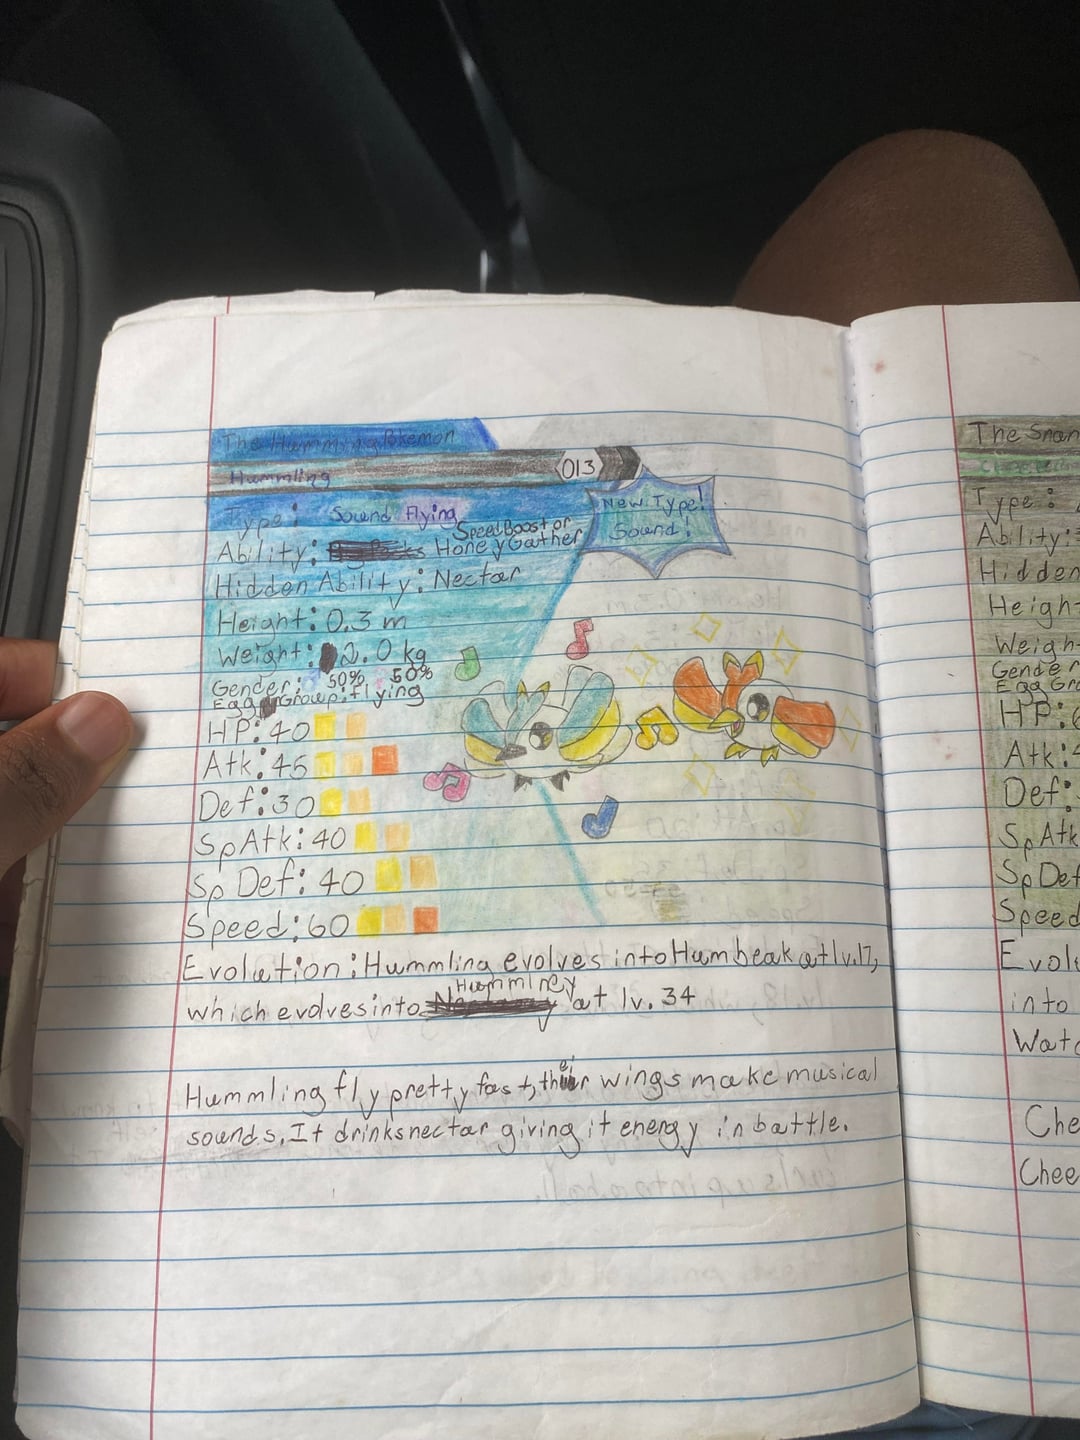 The Humming Pokemon
Hummling
013
Type: Sound Flying
New Type!
Sound!
Speed Boost or
Ability: Honey Gather
Hidden Ability: Nectar
Height: 0.3 m
Weight: 2.0 kg
Gender: 50% 50%
Egg Group: flying
HP: 40
Atk: 45
Def: 30
Sp Atk: 40
Sp Def: 40
Speed: 60
Evolution: Hummling evolves into Humbeak at lv. 17,
which evolves into Hummincy at lv. 34
Hummling fly pretty fast, their wings make musical
sounds. It drinks nectar giving it energy in battle.
The Snan
Type:
Ability:
Hidden
Height
Weight
Gender
Egg Gro
HP:
Atk:
Def:
Sp Atk
Sp Def
Speed
Evol
into
Wat
Che
Chee